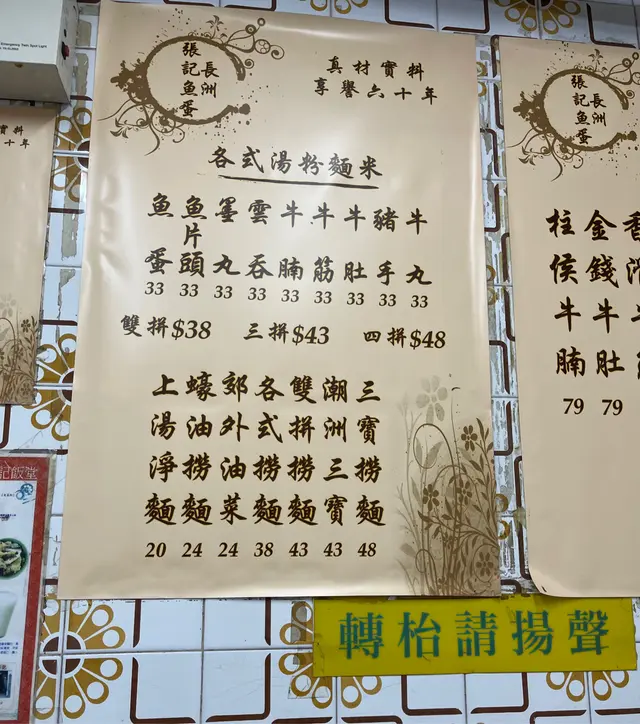 張記魚蛋
長洲
真材實料
享譽六十年
各式湯粉麵米
魚蛋 33
魚片頭 33
墨丸 33
雲吞 33
牛腩 33
牛筋 33
牛肚 33
豬手 33
牛丸 33
雙拼$38 三拼$43 四拼$48
上湯淨麵 20
蠔油撈麵 24
郊外油菜 24
各式撈麵 38
雙拼撈麵 43
潮洲三寶 43
三寶撈麵 48
張記魚蛋
長洲
柱侯牛腩 79
金錢牛肚 79
轉枱請揚聲
實料
十年
記飯堂